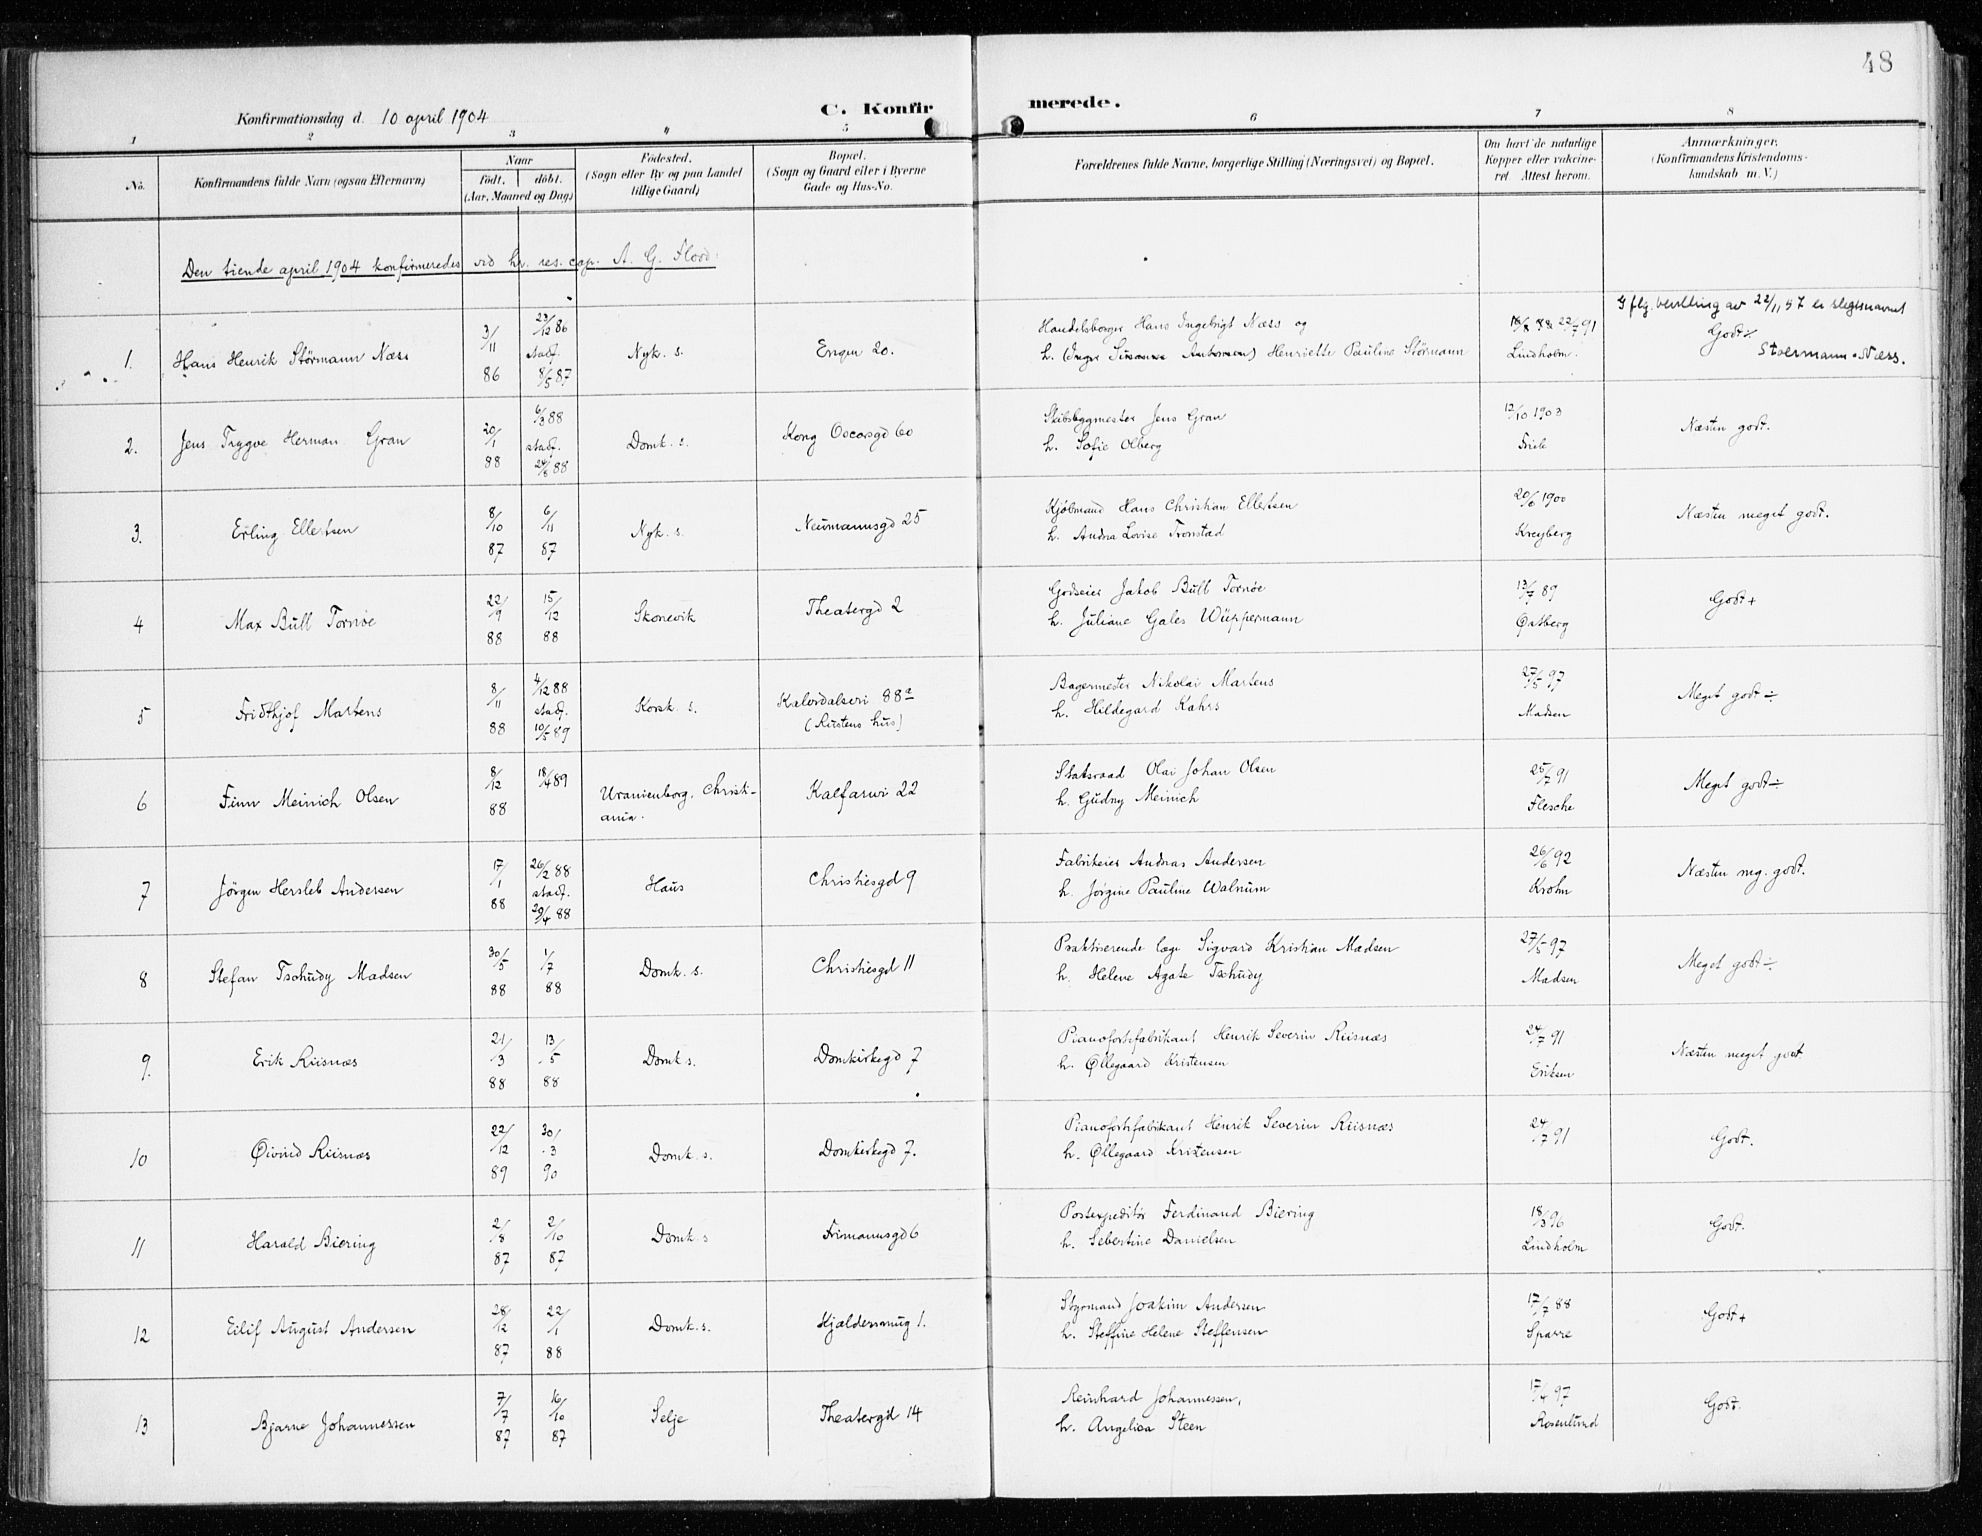 48
Konfirmationsdag d. 10 april 1904
C. Konfirmerede.
1 2 3 4 5 6 7 8
No.
Konfirmandens fulde Navn (ogsaa Efternavn)
Naar
født. døbt.
(Aar, Maaned og Dag)
Fødested.
(Sogn eller By og paa Landet
tillige Gaard)
Bopæl.
(Sogn og Gaard eller i Byerne
Gade og Hus-No.
Forældrenes fulde Navne, borgerlige Stilling (Næringsvei) og Bopæl.
Om havt de naturlige
Kopper eller vakcine-
ret. Attest herom.
Anmærkninger,
(Konfirmandens Kristendoms-
kundskab m. V.)
Den tiende april 1904 konfirmeredes ved hr. res. cap. A. G. Flood:
1. Hans Henrik Störmann Næss
3/11 86
23/12 86
stadf.
8/5 87
Nyk. s.
Engen 20.
Handelsborger Hans Ingebrigt Næss og
h. (Inger Susanna) Henriette Pauline Störmann
22/7 91
Lindholm.
Iflg. bevilling av 22/11 57 er slegtsnavnet
Godt÷
Stoermann-Næss.
2. Jens Trygve Herman Gran
20/1 88
6/3 88
stadf.
88
Domk. s.
Kong Oscarsgd 60
Skibsbygmester Jens Gran
h. Sofie Olberg
12/10 1903
Friele
Næsten godt.
3. Erling Ellertsen
8/10 87
6/11 87
Nyk. s.
Neumannsgd 25
Kjøbmand Hans Christian Ellertsen
h. Andrea Lovise Tronstad
20/6 1900
Kreyberg
Næsten meget godt.
4 Max Bull Tornöe
22/9 88
15/12 88
Skonevik
Theatergd 2
Godseier Jakob Bull Tornöe
h. Juliane Gales Wüppermann
13/7 89
Østberg
Godt+
5 Fridthjof Martens
8/11 88
4/12 88
stadf.
10/5 89
Korsk. s.
Kalvedalsvei 88a
(Rustens hus)
Bagermester Nikolai Martens
h. Hildegard Kahrs
27/5 97
Madsen
Meget godt÷
6 Finn Meinich Olsen
8/12 88
18/4 89
Uranienborg, Christi-
ania.
Kalfarvei 22
Statsraad Olai Johan Olsen
h. Gudny Meinich
25/7 91
Flesche
Meget godt÷
7 Jörgen Hersleb Andersen
17/1 88
26/2 88
stadf.
29/4 88
Haus
Christiesgd 9
Fabrikeier Andreas Andersen
h. Jörgine Pauline Walnum
26/6 92
Krohn
Næsten meg. godt.
8 Stefan Tschudy Madsen
30/5 88
1/7 88
Domk. s.
Christiesgd 11
Praktiserende læge Sigvard Kristian Madsen
h. Helene Agate Tschudy
27/5 97
Madsen
Meget godt÷
9. Erik Riisnæs
21/3 88
13/5 88
Domk. s.
Domkirkegd 7
Pianofortefabrikant Henrik Severin Riisnæs
h. Øllegaard Kristensen
24/7 91
Eriksen
Næsten meget godt
10 Øivind Riisnæs
22/12 89
30/3 90
Domk. s.
Domkirkegd 7.
Pianofortefabrikant Henrik Severin Riisnæs
h. Øllegaard Kristensen
24/7 91
Godt.
11 Harald Biering
2/8 87
2/10 87
Domk. s
Frimannsgd 6
Postexpeditör Ferdinand Biering
h. Sebertine Danielsen
18/3 96
Lindholm
Godt.
12 Eilif August Andersen
28/12 87
22/1 88
Domk. s.
Kjeldersmug 1.
Styrmand Joakim Andersen
h. Steffine Helene Steffensen
17/7 88
Sparre
Godt+
13 Bjarne Johannessen
7/7 87
16/10 87
Selje
Theatergd 14
Reinhard Johannessen,
h. Angelica Steen
17/4 97
Rosenlund
Godt.